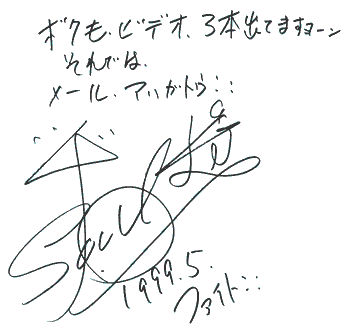 ボクも、ビデオ、3本出てますヨーン
それでは、
メール、アリガトウ::
1999.5.
ファイト::